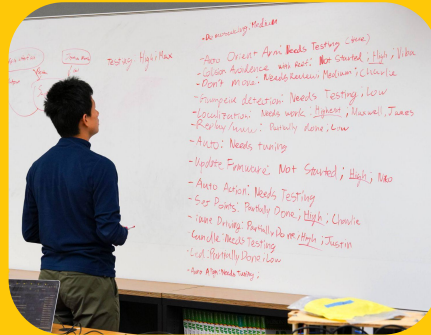 Testing: High; Max
Medium
- Auto Orient Arm: Needs Testing (done)
- Collision Avoidence with Reef: Not Started; High;
- Don't move: Needs Review; Medium; Charlie
detection: Needs Testing; Low
- Localization: Needs work; Highest; Maxwell, James
Partially done; Low
- Auto: Needs tuning
- Update Firmware: Not Started; High; Neo
- Auto Action: Needs Testing
- Set Points: Partially Done; High; Charlie
Driving: Partially Done; High; Justin
Needs Testing
- Led: Partially Done; Low
- Auto Align: Needs Tuning;